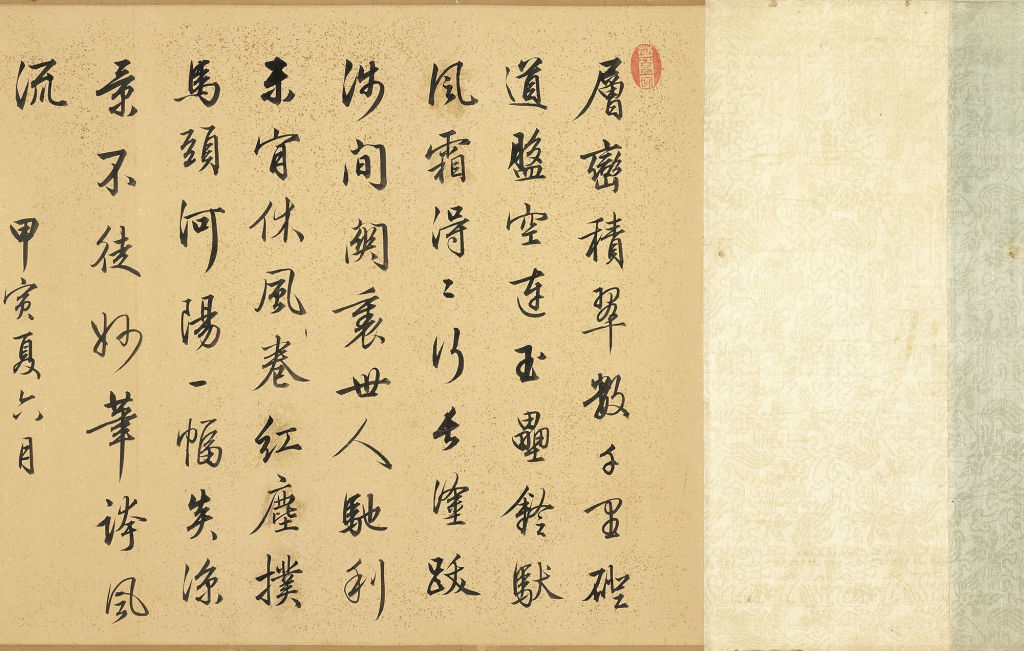 層巒積翠數千里磴
道盤空連玉壘鈴馱
風霜得〻行長塗跋
涉間關裏世人馳利
未肯休風卷紅塵撲
馬頭河陽一幅炎涼
景不徒妙筆誇風
流 甲寅夏六月